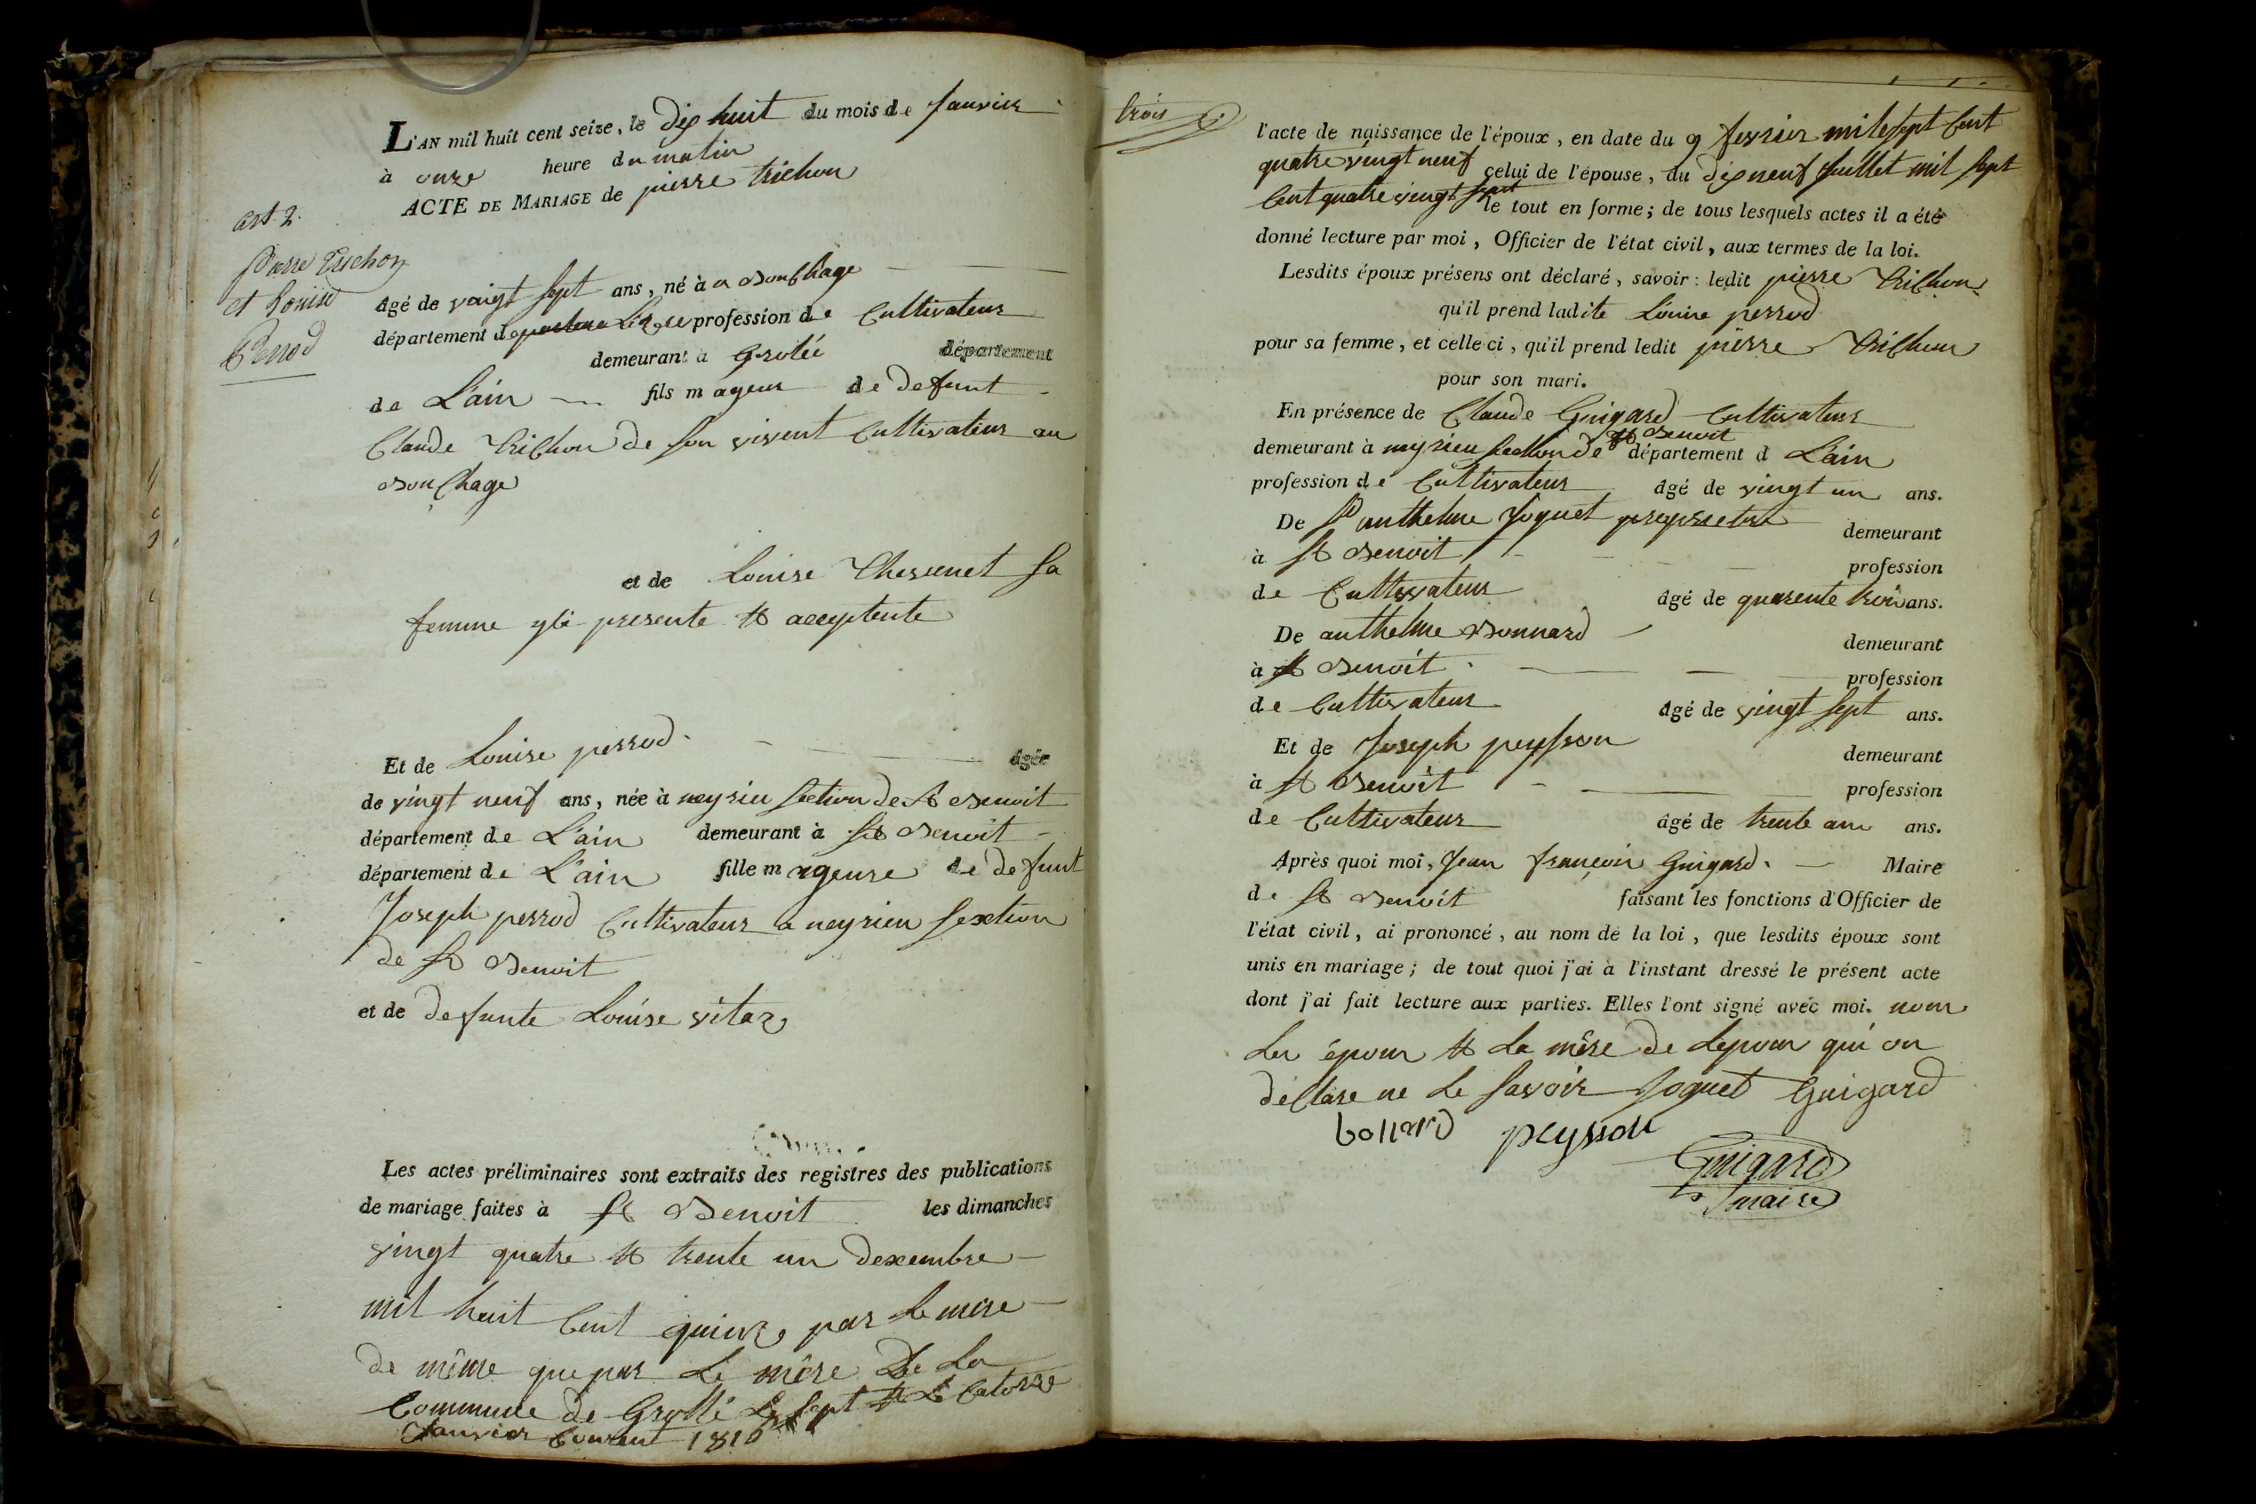 L'AN mil huit cent seize, le dix huit du mois de Janvier
à onze heure du matin
ACTE DE MARIAGE de pierre trichon
art 2.
Pierre Trichon
et Louise
Perrod
âgé de vaigt sept ans, né à a Bouchage
département de profession de Cultivateur
demeurant à Grolée département
de L'ain fils mageur de defunt
Claude trichon de son vivent Cultivateur au
Bouchage
et de Louise Thevenet sa
femme ybi presente et acceptente
Et de Louise perrod. âgée
de vingt neuf ans, née à neyrieu section de St Benoit
département de L'ain demeurant à St Benoit
département de L'ain fille mageure de defunt
Joseph perrod Cultivateur a neyrieu sextion
de St Benoit
et de defunte Louise vitaz
Les actes préliminaires sont extraits des registres des publications
de mariage faites à St Benoit les dimanches
vingt quatre et trente un dexembre
mil huit Cent quinze par le mere
de même que par le mère de la
Commune de Grollé le sept et le Catorze
Janvier Courent 1816
trois
l'acte de naissance de l'époux, en date du 9 fevrier mile sept Cent
quatre vingt neuf celui de l'épouse, du dix neuf Juillet mil sept
Cent quatre vingt le tout en forme; de tous lesquels actes il a été
donné lecture par moi, Officier de l'état civil, aux termes de la loi.
Lesdits époux présens ont déclaré, savoir: ledit pierre trichon
qu'il prend ladite Louise perrod
pour sa femme, et celle ci, qu'il prend ledit pierre trichon
pour son mari.
En présence de Claude Guigard Cultivateur
demeurant à neyrieu section de St Benoit département d L'ain
profession de Cultivateur âgé de vingt un ans.
De Sr anthelme Joguet propriettre demeurant
à St Benoit profession
de Cultivateur âgé de quarente trois ans.
De anthelme Bonnard demeurant
à St Benoit profession
de Cultivateur âgé de vingt sept ans.
Et de Joseph peysson demeurant
à St Benoit profession
de Cultivateur âgé de trente ans.
Après quoi moi, Jean françois Guigard. Maire
de St Benoit faisant les fonctions d'Officier de
l'état civil, ai prononcé, au nom de la loi, que lesdits époux sont
unis en mariage; de tout quoi j'ai à l'instant dressé le présent acte
dont j'ai fait lecture aux parties. Elles l'ont signé avec moi. non
Les épour et la mère de lepour qui on
déclare ne le savoir Joguet Guigard
bonard peysson
Guigard
maire